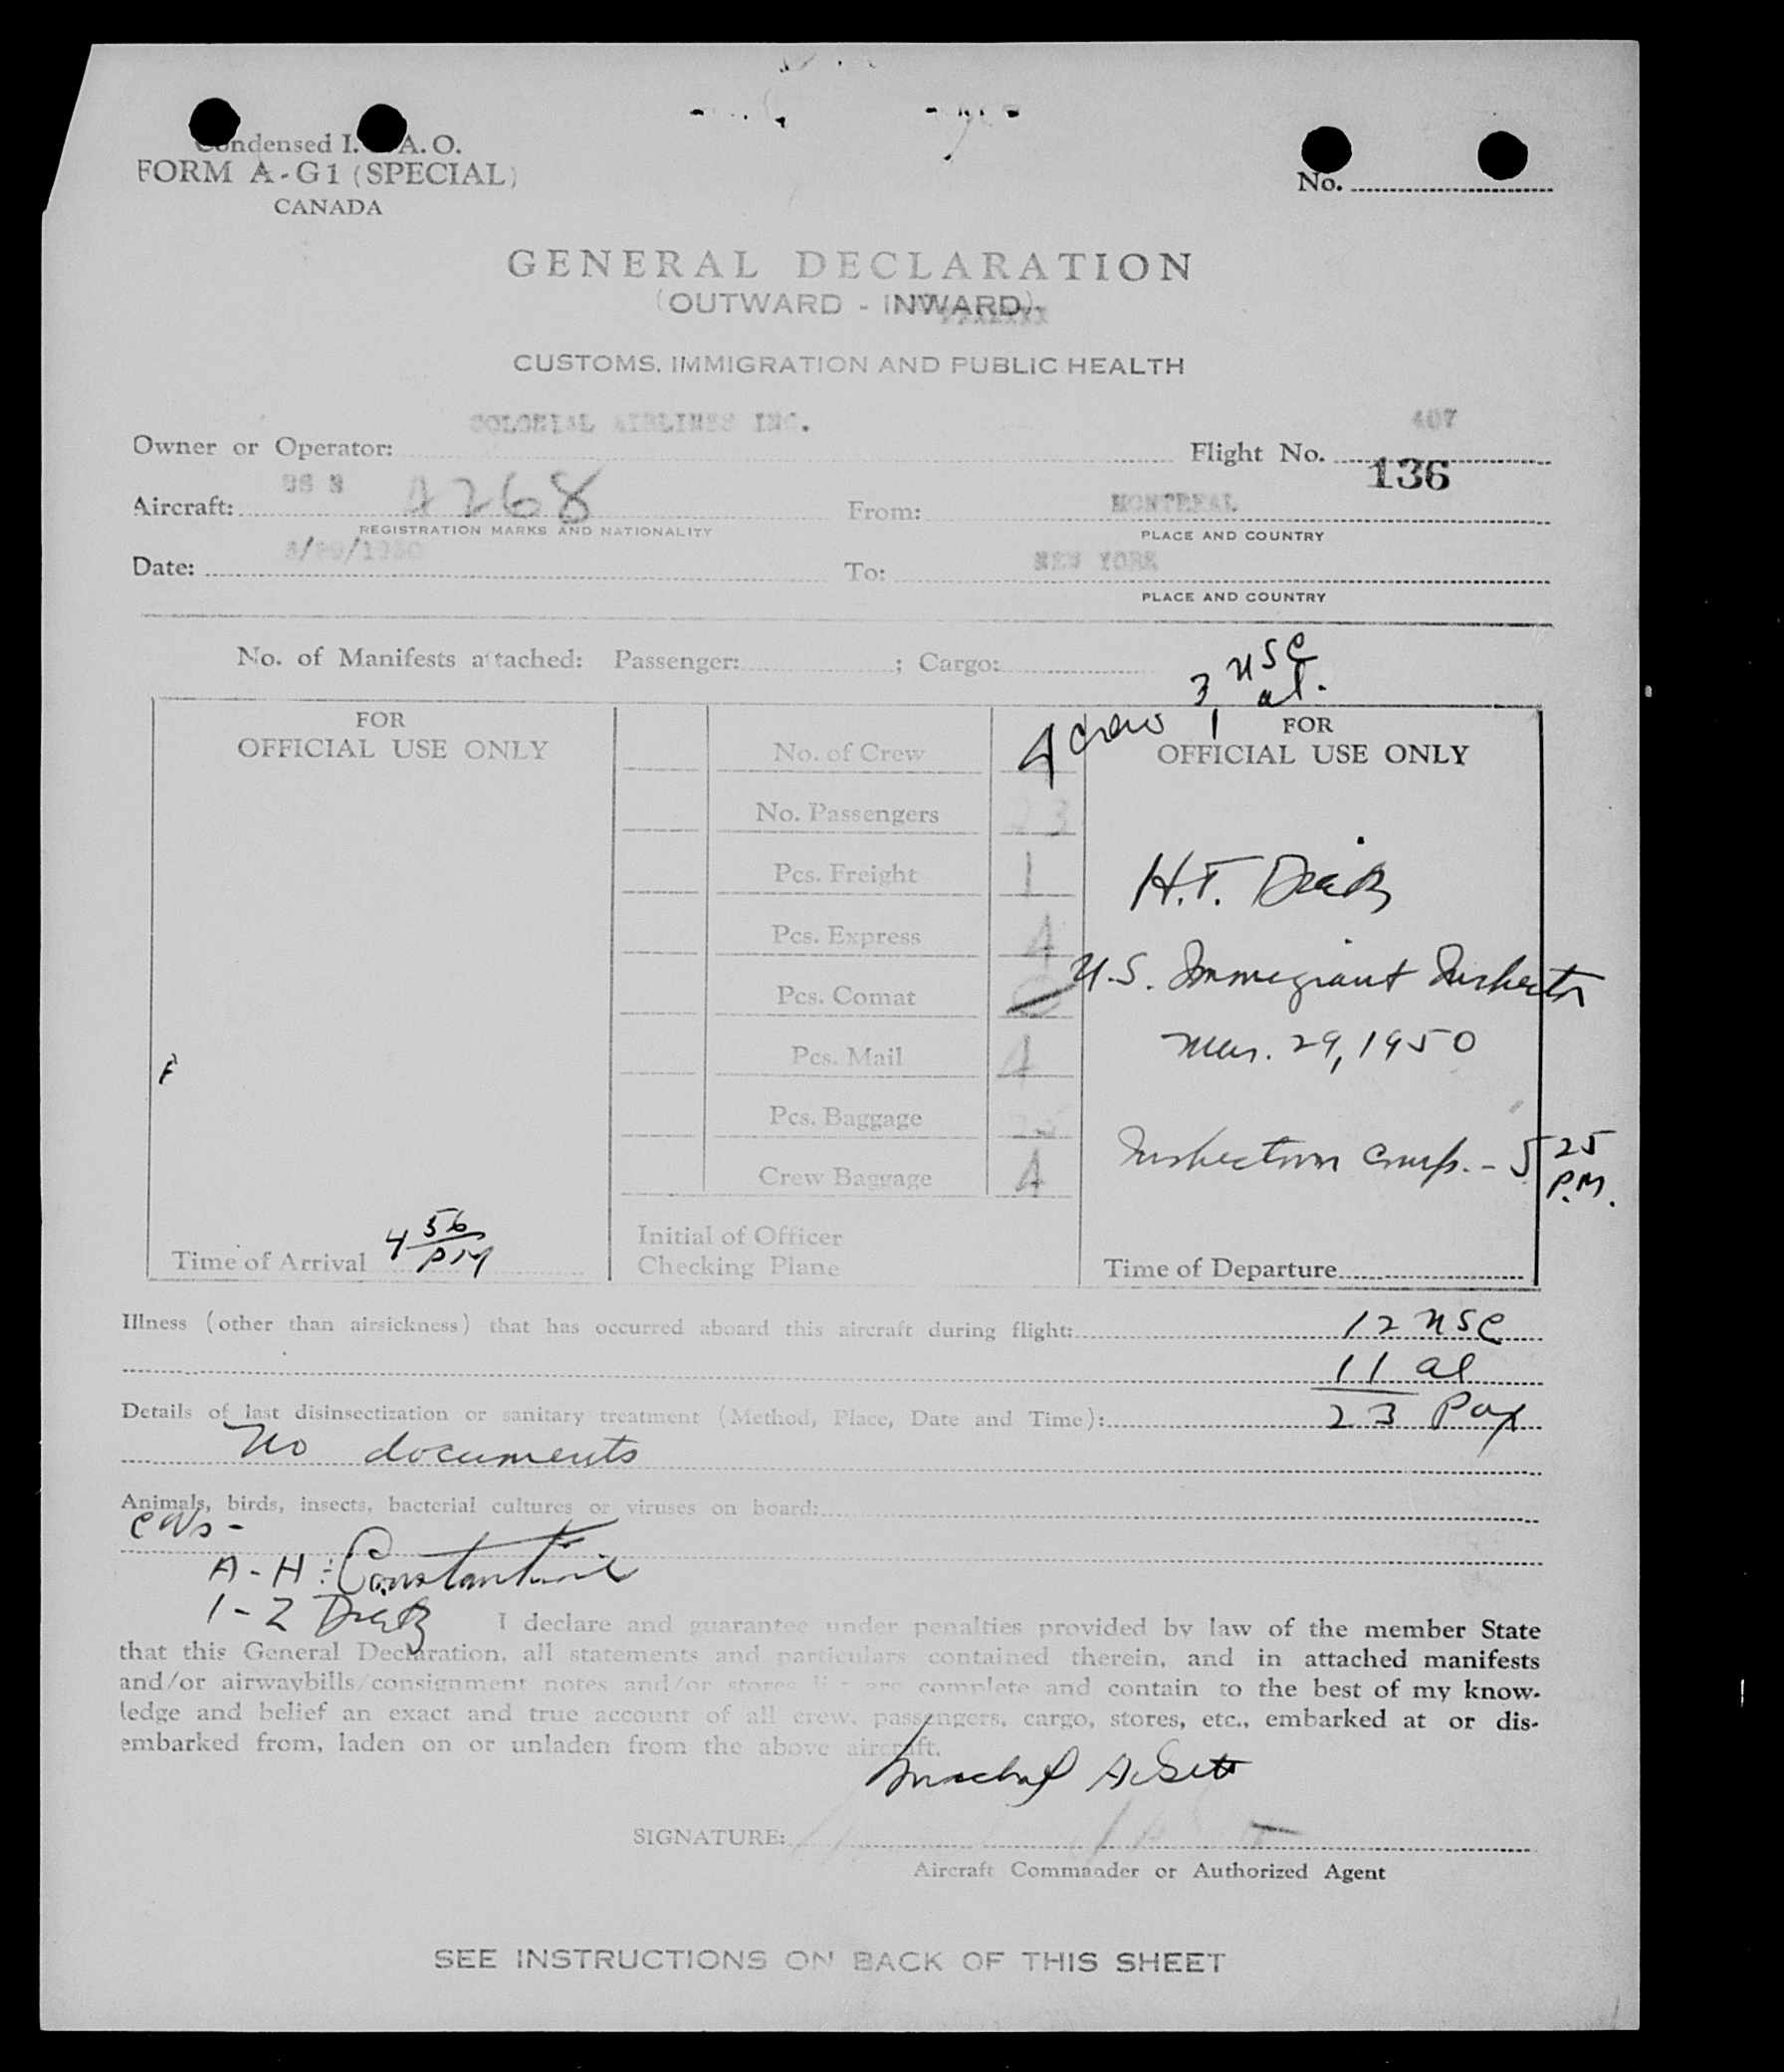 Condensed I. A. O.
FORM A-G1 (SPECIAL)
CANADA
No.
GENERAL DECLARATION
(OUTWARD - INWARD)
CUSTOMS, IMMIGRATION AND PUBLIC HEALTH
COLONIAL AIRLINES INC.
407
Owner or Operator:
Flight No.
136
US N
4268
MONTREAL
Aircraft:
From:
REGISTRATION MARKS AND NATIONALITY
PLACE AND COUNTRY
3/29/1950
NEW YORK
Date:
To:
PLACE AND COUNTRY
No. of Manifests attached: Passenger: ; Cargo:
3 USC
1 al.
4 crew
FOR
OFFICIAL USE ONLY
FOR
OFFICIAL USE ONLY
No. of Crew
No. Passengers 23
Pcs. Freight 1
H.T. Dietz
Pcs. Express 4
U.S. Immigrant Inspector
Pcs. Comat
Mar. 29, 1950
Pcs. Mail
Pcs. Baggage
Inspection comp. - 5 25 P.M.
Crew Baggage 4
Initial of Officer
Checking Plane
Time of Arrival 4 56 PM
Time of Departure
Illness (other than airsickness) that has occurred aboard this aircraft during flight: 12 USC
11 al
Details of last disinsectization or sanitary treatment (Method, Place, Date and Time): 23 Pax
No documents
Animals, birds, insects, bacterial cultures or viruses on board:
A-H: Constantine
1-Z Dietz
I declare and guarantee under penalties provided by law of the member State
that this General Declaration, all statements and particulars contained therein, and in attached manifests
and/or airwaybills/consignment notes and/or stores list are complete and contain to the best of my know-
ledge and belief an exact and true account of all crew, passengers, cargo, stores, etc., embarked at or dis-
embarked from, laden on or unladen from the above aircraft.
SIGNATURE:
Aircraft Commander or Authorized Agent
SEE INSTRUCTIONS ON BACK OF THIS SHEET